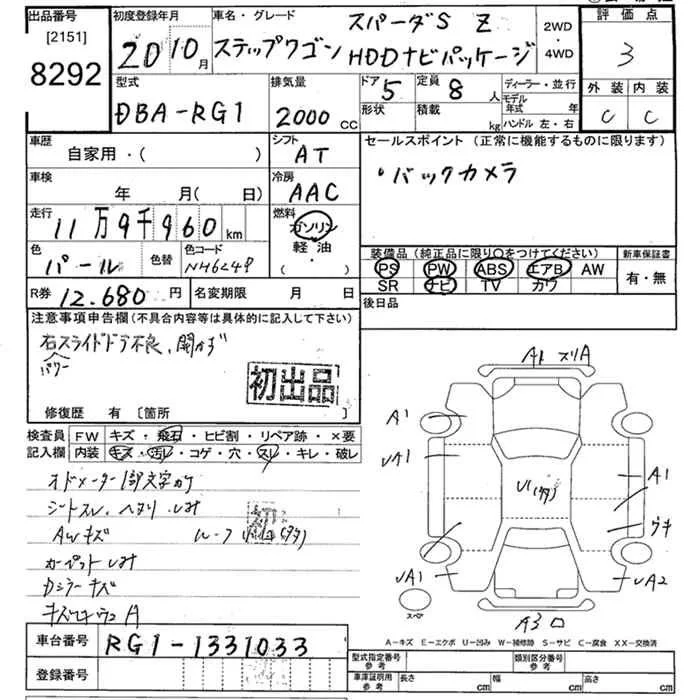 出品番号 初度登録年月 車名・グレード スパーダS Z 2WD・4WD 評価点
[2151] 8292 20 10月 ステップワゴン HDDナビパッケージ 3
型式 排気量 ドア 5 定員 8人 ディーラー・並行 外装 内装
DBA-RG1 2000 CC 形状 積載 kg モデル年式 年 ハンドル 左・右 C C
車歴 自家用・( ) シフト AT セールスポイント (正常に機能するものに限ります)
車検 年 月(日) 冷房 AAC ・バックカメラ
走行 11万9千960 km 燃料 ガソリン
色 パール 色替 色コード NH624P 軽油 ・( )
装備品 (純正品に限り○をつけてください) 新車保証書
PS PW ABS エアB AW 有・無
SR ナビ TV カワ
R券 12.680円 名変期限 月 日 後日品
注意事項申告欄 (不具合内容等は具体的に記入して下さい)
右スライドドア不良、開かず
パワー
初出品
修復歴 有 [箇所 ]
検査員 FW キズ・飛石・ヒビ割・リペア跡・×要
記入欄 内装 キズ・汚レ・コゲ・穴・スレ・キレ・破レ
オドメーター1部文字カケ
シートスレ、ヘタリ、シミ
AWキズ ルーフ
カーペットシミ
カジラーキズ
A1 スリA
A1
UA1
U1(タタ)
A1
ウキ
UA1
UA2
スペア
A3 ロ
A-キズ E-エクボ U-凹み W-補修跡 S-サビ C-腐食 XX-交換済
車台番号 RG1-1331033
登録番号
型式指定番号 参考 類別区分番号 参考
車庫証明用 参考 長さ cm 幅 cm 高さ cm